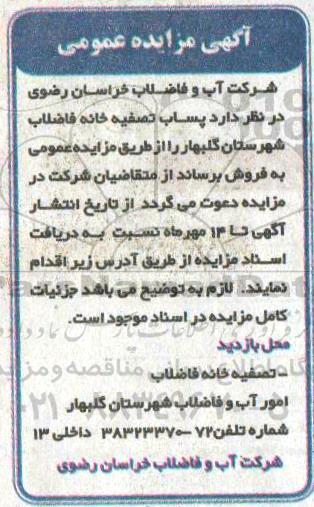 آگهی مزایده عمومی
شرکت آب و فاضلاب خراسان رضوی
در نظر دارد پساب تصفیه خانه فاضلاب
شهرستان گلبهار را از طریق مزایده عمومی
به فروش برساند از متقاضیان شرکت در
مزایده دعوت می گردد از تاریخ انتشار
آگهی تا ۱۴ مهرماه نسبت به دریافت
اسناد مزایده از طریق آدرس زیر اقدام
نمایند. لازم به توضیح می باشد جزئیات
کامل مزایده در اسناد موجود است.
محل بازدید
- تصفیه خانه فاضلاب
امور آب و فاضلاب شهرستان گلبهار
شماره تلفن ۷۲ – ۳۸۳۲۳۳۷۰ داخلی ۱۳
شرکت آب و فاضلاب خراسان رضوی